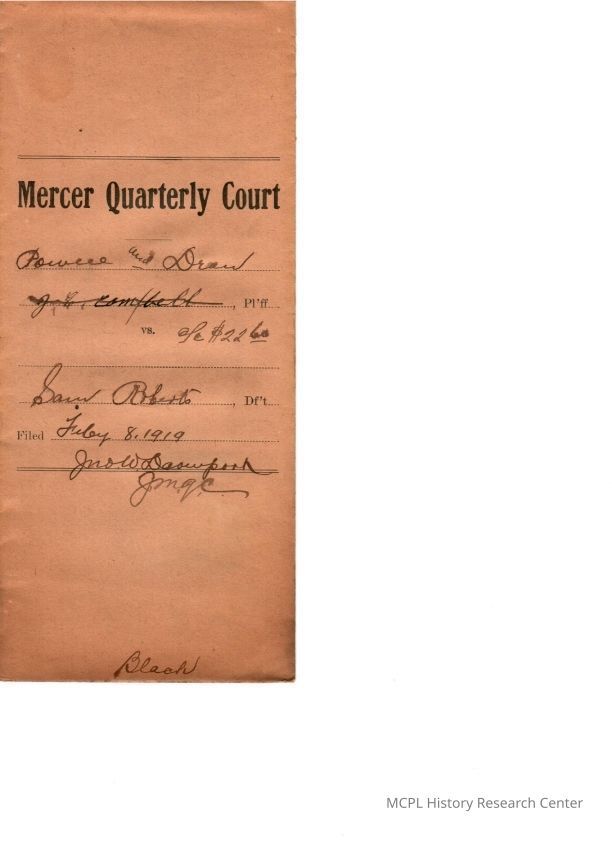 Mercer Quarterly Court
Powell and Dean
J. C. Campbell, Pl'ff
vs. a/c $22 60
Sam Roberts, Df't
Filed Feby 8. 1919
Jno W. Davenport
J.M.Q.C.
Black
MCPL History Research Center